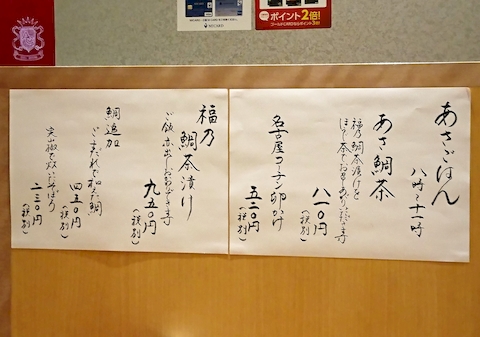 ポイント2倍!
あさごはん
八時〜十一時
あさ鯛茶
福乃鯛茶漬けと
ほうじ茶でお召しあがりいただけます
八一〇円
(税別)
名古屋コーチン卵かけ
五二〇円
(税別)
福乃
鯛茶漬け
ご飯
九五〇円
(税別)
鯛追加
ごまだれで和えた鯛
四五〇円
(税別)
実山椒で炊いたそぼろ
二三〇円
(税別)